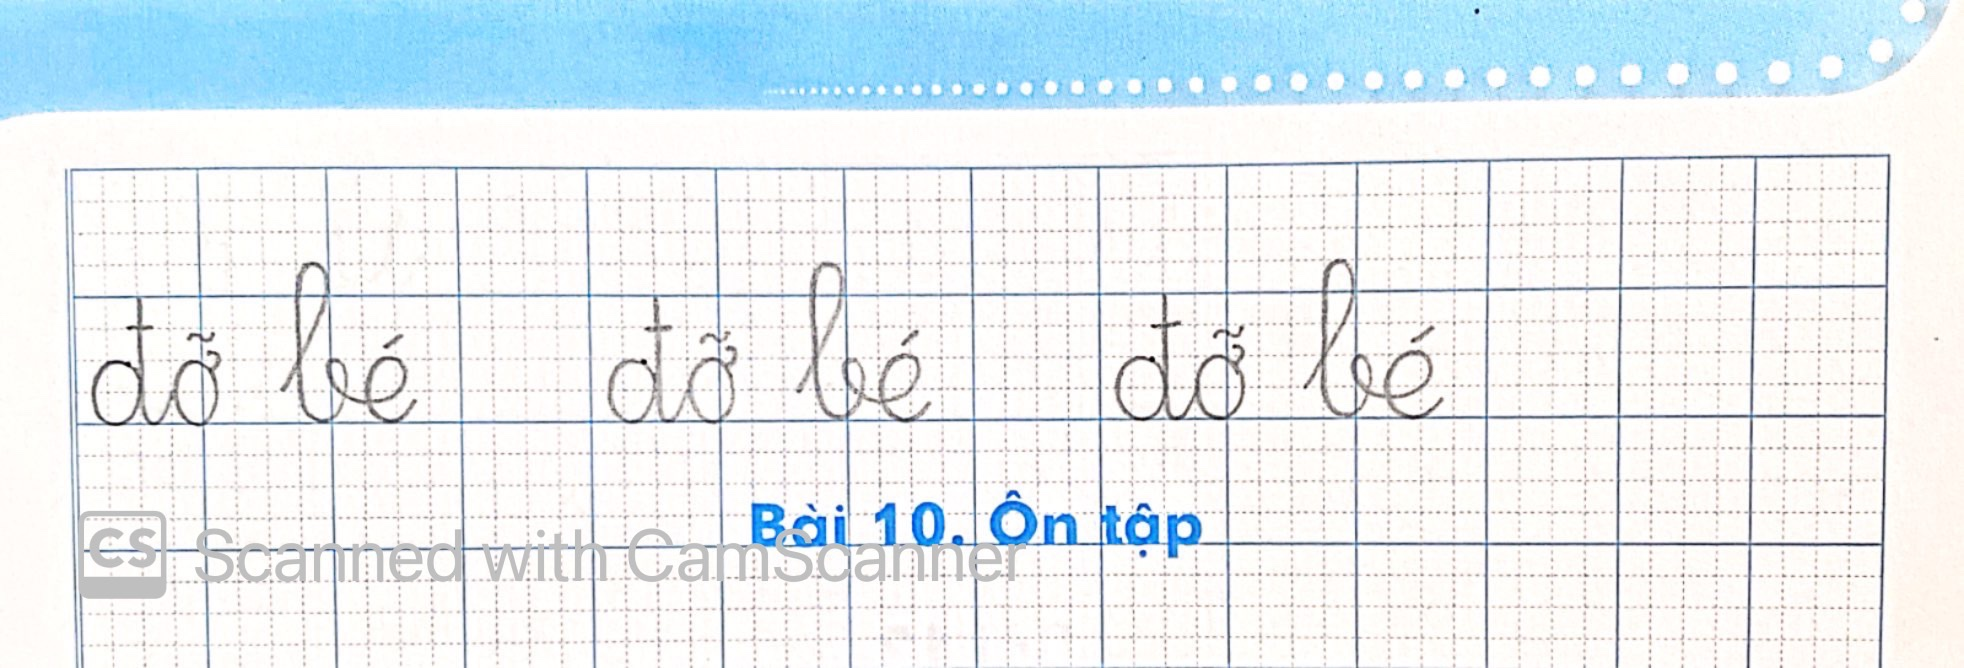 đỡ bé đỡ bé đỡ bé
Bài 10. Ôn tập
CS Scanned with CamScanner